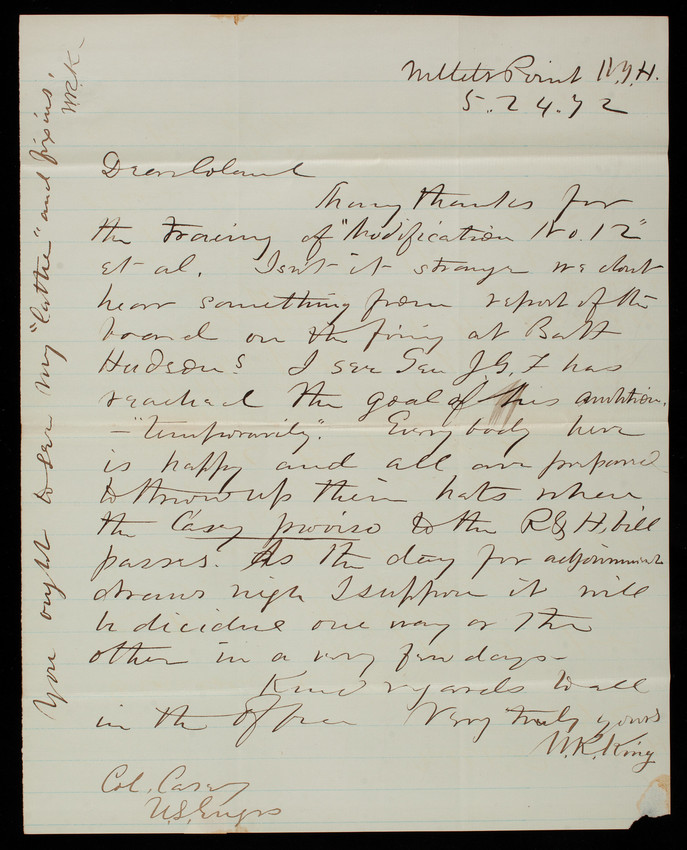 Willets Point N.Y.H.
5.24.72
Dear Colonel
Many thanks for
the tracing of "Modification No. 12"
et al. Isn't it strange we dont
hear something from report of the
board on the firing at Batt
Hudson? I see Gen J.G.F has
reached the goal of his ambition,
- "temporarily". Everybody here
is happy and all are prepared
to throw up their hats when
the Casey proviso to the R & H, bill
passes. As the day for adjournment
draws nigh I suppose it will
be decided one way or the
other in a very few days -
Kind regards to all
in the office Very truly yours
W.R. King
Col. Casey
U.S. Engrs
You ought to see my "lathe" and fixins'.
W.R.K.